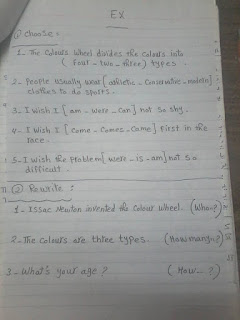 EX
① Choose :
1. The Colours wheel divides the colours into
( four - two - three) types.
2- People usually wear [athletic - Conservative - modern]
clothes to do sports.
3- I wish I [am - were - can] not so shy.
4- I wish I [Come - Comes - Came] first in the
race.
5- I wish the problem [were - is - am] not so
difficult.
② Rewrite :
1- Issac Newton invented the Colour wheel. (Who=?)
2- The Colours are three types. (How many=?)
3 - What's your age ? ( How - ?)